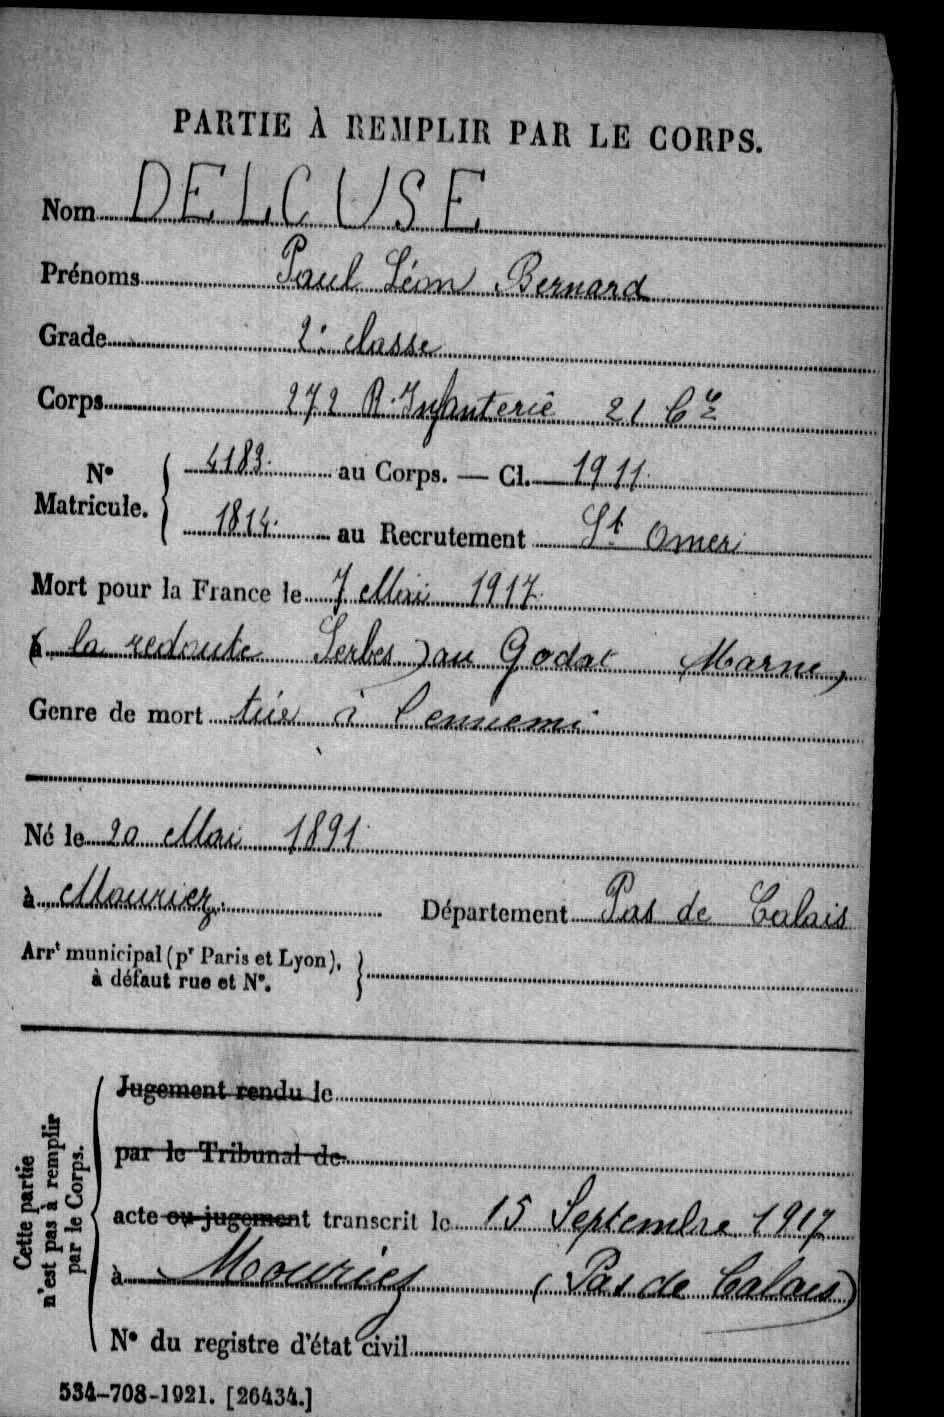 PARTIE À REMPLIR PAR LE CORPS.
Nom DELCUSE
Prénoms Paul Léon Bernard
Grade 2e classe
Corps 272 R. Infanterie 21 Cie
N° Matricule. { 4183. au Corps. — Cl. 1911.
1814. au Recrutement St Omer
Mort pour la France le 7 Mai 1917
à (la redoute Serbes) au Godat Marne)
Genre de mort tué à l'ennemi
Né le 20 Mai 1891
à Mouriez. Département Pas de Calais
Arrt municipal (pr Paris et Lyon), à défaut rue et N°. }
Cette partie n'est pas à remplir par le Corps.
Jugement rendu le
par le Tribunal de
acte ou jugement transcrit le 15 Septembre 1917
à Mouriez (Pas de Calais)
N° du registre d'état civil
534-708-1921. [26434.]